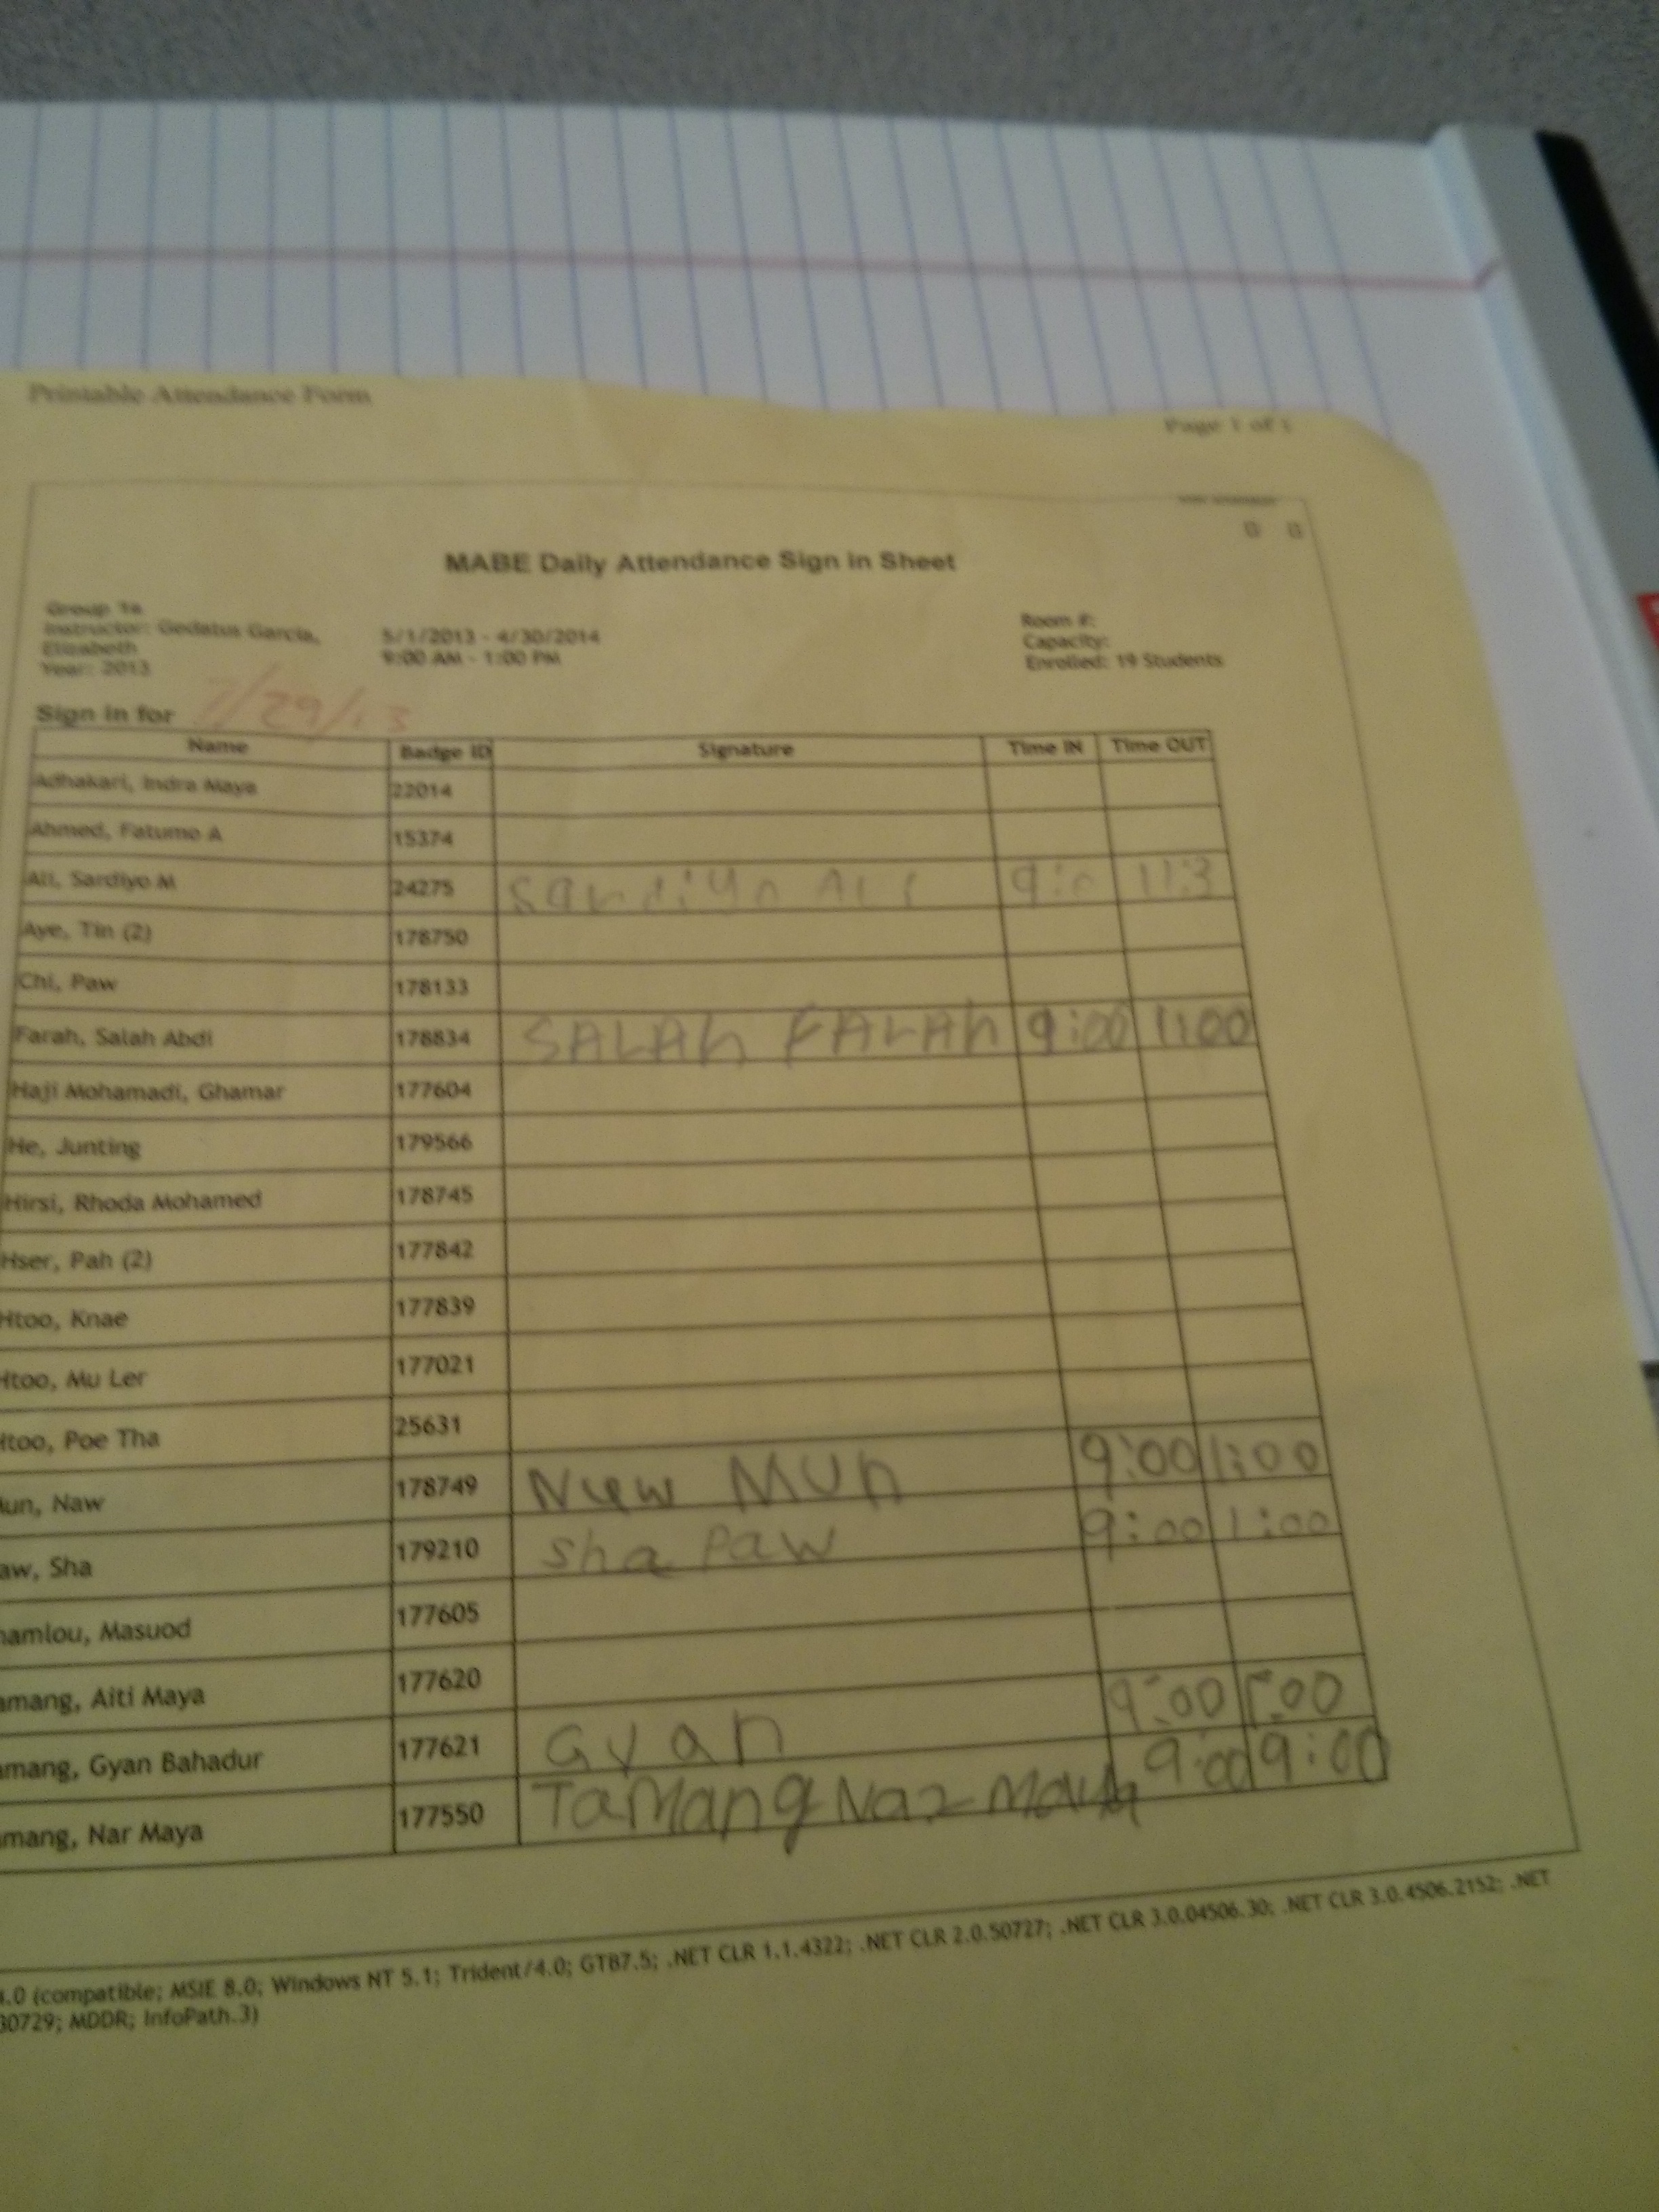 Printable Attendance Form
Page 1 of 1
MABE Daily Attendance Sign In Sheet
Group 1a
Instructor: Gedatus Garcia, 5/1/2013 - 4/30/2014 Room #:
Elizabeth 9:00 AM - 1:00 PM Capacity:
Year: 2013 Enrolled: 19 Students
Sign in for 7/29/13
Name Badge ID Signature Time IN Time OUT
Adhakari, Indra Maya 22014
Ahmed, Fatumo A 15374
Ali, Sardiyo M 24275 Sardiyo Ali 9:0 11:3
Aye, Tin (2) 178750
Chi, Paw 178133
Farah, Salah Abdi 178834 SALAh FALAh 9:00 1:00
Haji Mohamadi, Ghamar 177604
He, Junting 179566
Hirsi, Rhoda Mohamed 178745
Hser, Pah (2) 177842
Htoo, Knae 177839
Htoo, Mu Ler 177021
Htoo, Poe Tha 25631
un, Naw 178749 Nuw MUn 9:00 1:00
aw, Sha 179210 sha Paw 9:00 1:00
hamlou, Masuod 177605
amang, Aiti Maya 177620
amang, Gyan Bahadur 177621 Gyan 9:00 1:00
amang, Nar Maya 177550 TaMang Nar Maya 9:00 9:00
4.0 (compatible; MSIE 8.0; Windows NT 5.1; Trident/4.0; GTB7.5; .NET CLR 1.1.4322; .NET CLR 2.0.50727; .NET CLR 3.0.04506.30; .NET CLR 3.0.4506.2152; .NET
30729; MDDR; InfoPath.3)